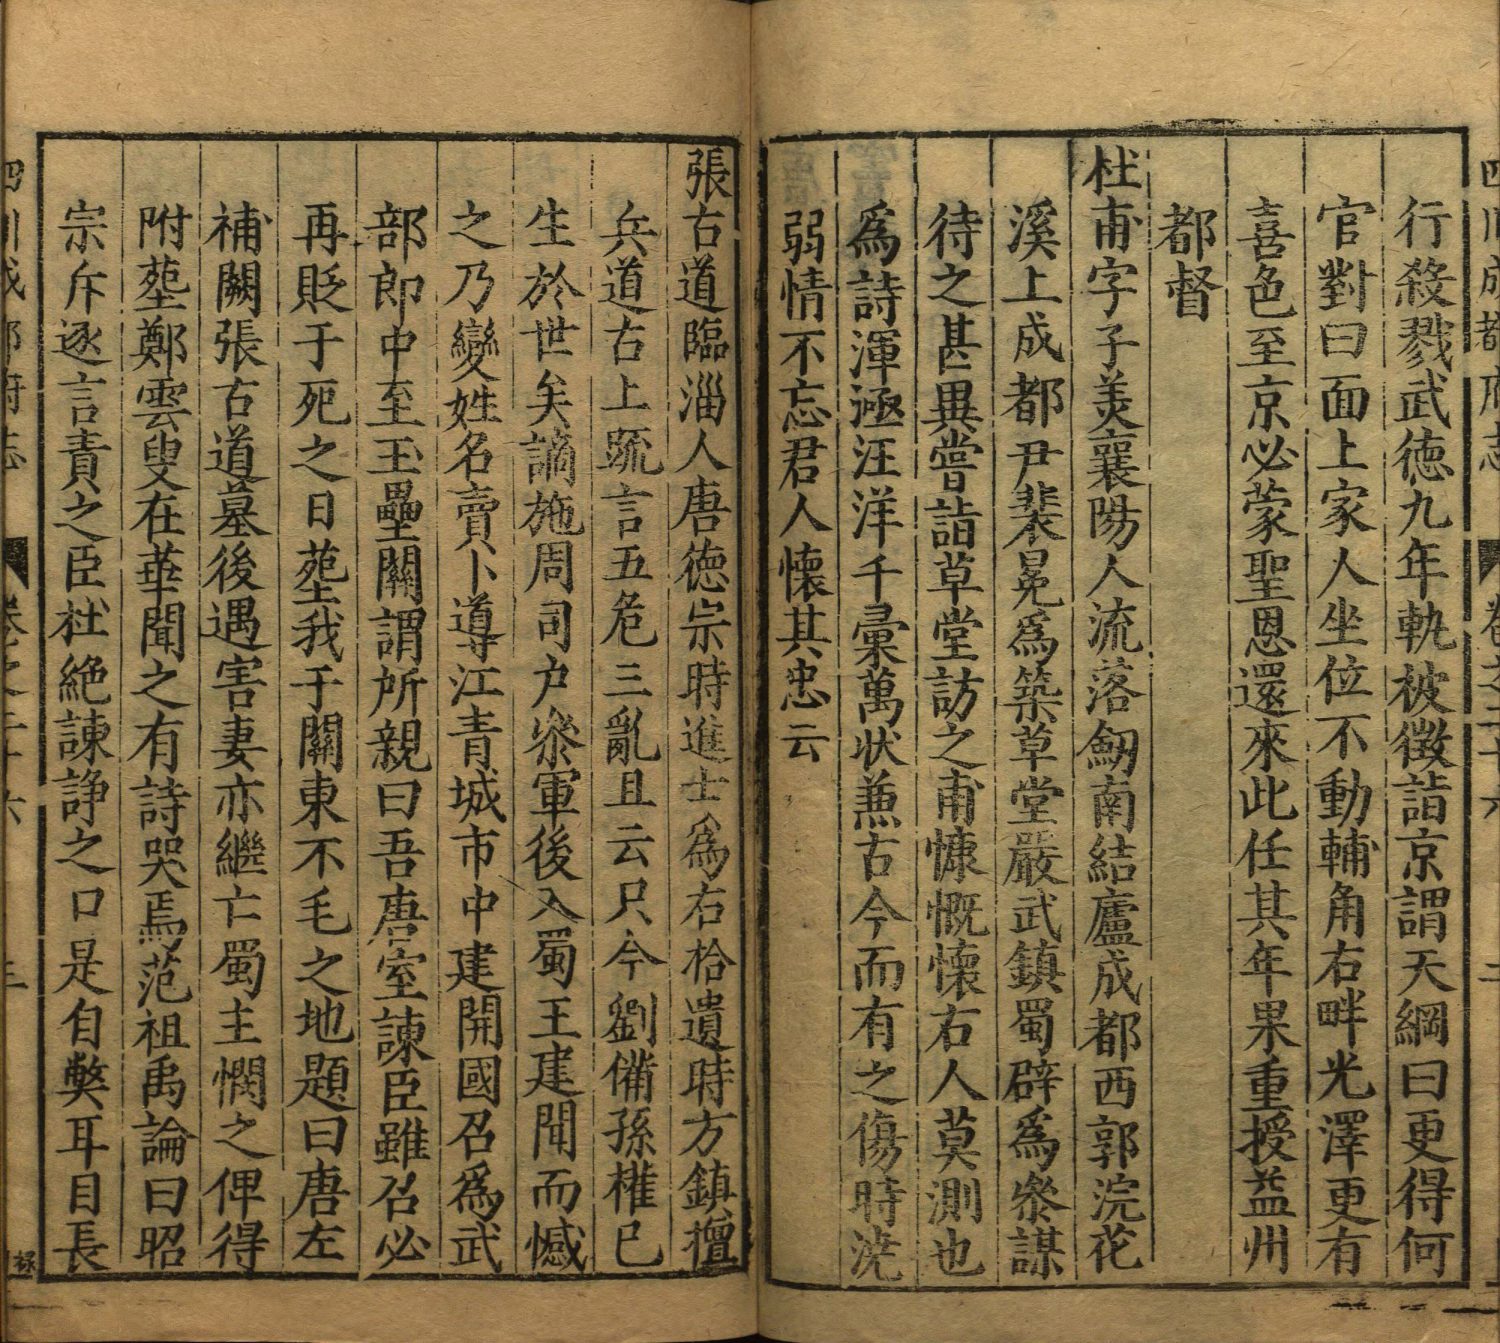 行殺戮武德九年軌被徵詣京謂天綱曰更得何
官對曰面上家人坐位不動輔角右畔光澤更有
喜色至京必蒙聖恩還來此任其年果重授益州
都督
杜甫字子美襄陽人流落劒南結廬成都西郭浣花
溪上成都尹裴冕爲築草堂嚴武鎮蜀辟爲叅謀
待之甚異嘗詣草堂訪之甫慷慨懷右人莫測也
爲詩渾涵汪洋千彙萬狀兼古今而有之傷時澆
弱情不忘君人懷其忠云
張右道臨淄人唐德宗時進士爲右拾遺時方鎮擅
兵道右上疏言五危三亂且云只今劉備孫權已
生於世矣謫施周司户叅軍後入蜀王建聞而憾
之乃變姓名賣卜導江青城市中建開國召爲武
部郎中至玉壘關謂所親曰吾唐室諫臣雖召必
再貶于死之日塟我于關東不毛之地題曰唐左
補闕張右道墓後遇害妻亦繼亡蜀主憫之俾得
附塟鄭雲叟在華聞之有詩哭焉范祖禹論曰昭
宗斥逐言責之臣杜絶諫諍之口是自獘耳目長
四川成都府志 卷之二十六 二
卷之二十六 三